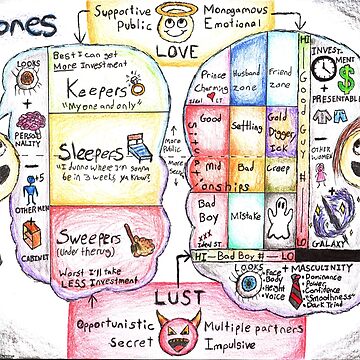 ones
Supportive
Public
Monogamous
Emotional
LOVE
LOOKS
+
PERSO
NALITY
-
5
OTHER MEN
CABINET
Best I can get
More Investment
Keepers
"My one and only"
Sleepers
"I dunno where I'm gonna
be in 3 weeks, ya know?
Sweepers
(Under the rug)
Worst I'll take
LESS Investment
More
Public
More
Secret
Prince
Charming
Ideal LT
Husband
zone
Friend
zone
Good
Settling
Gold
Digger
Ick
Situationships
Mid
Bad
Creep
Bad
Boy
Ideal ST
Mistake
HI
Good Guy #
LO
HI-Bad Boy #-LO
INVEST-
MENT
$
+
PRESENTABLE
OTHER
WOMEN
GALAXY
LOOKS
Face
Body
Height
Voice
+ MASCULINITY
Dominance
Power
Confidence
"Smoothness"
Dark Triad
LUST
Opportunistic
Secret
Multiple partners
Impulsive